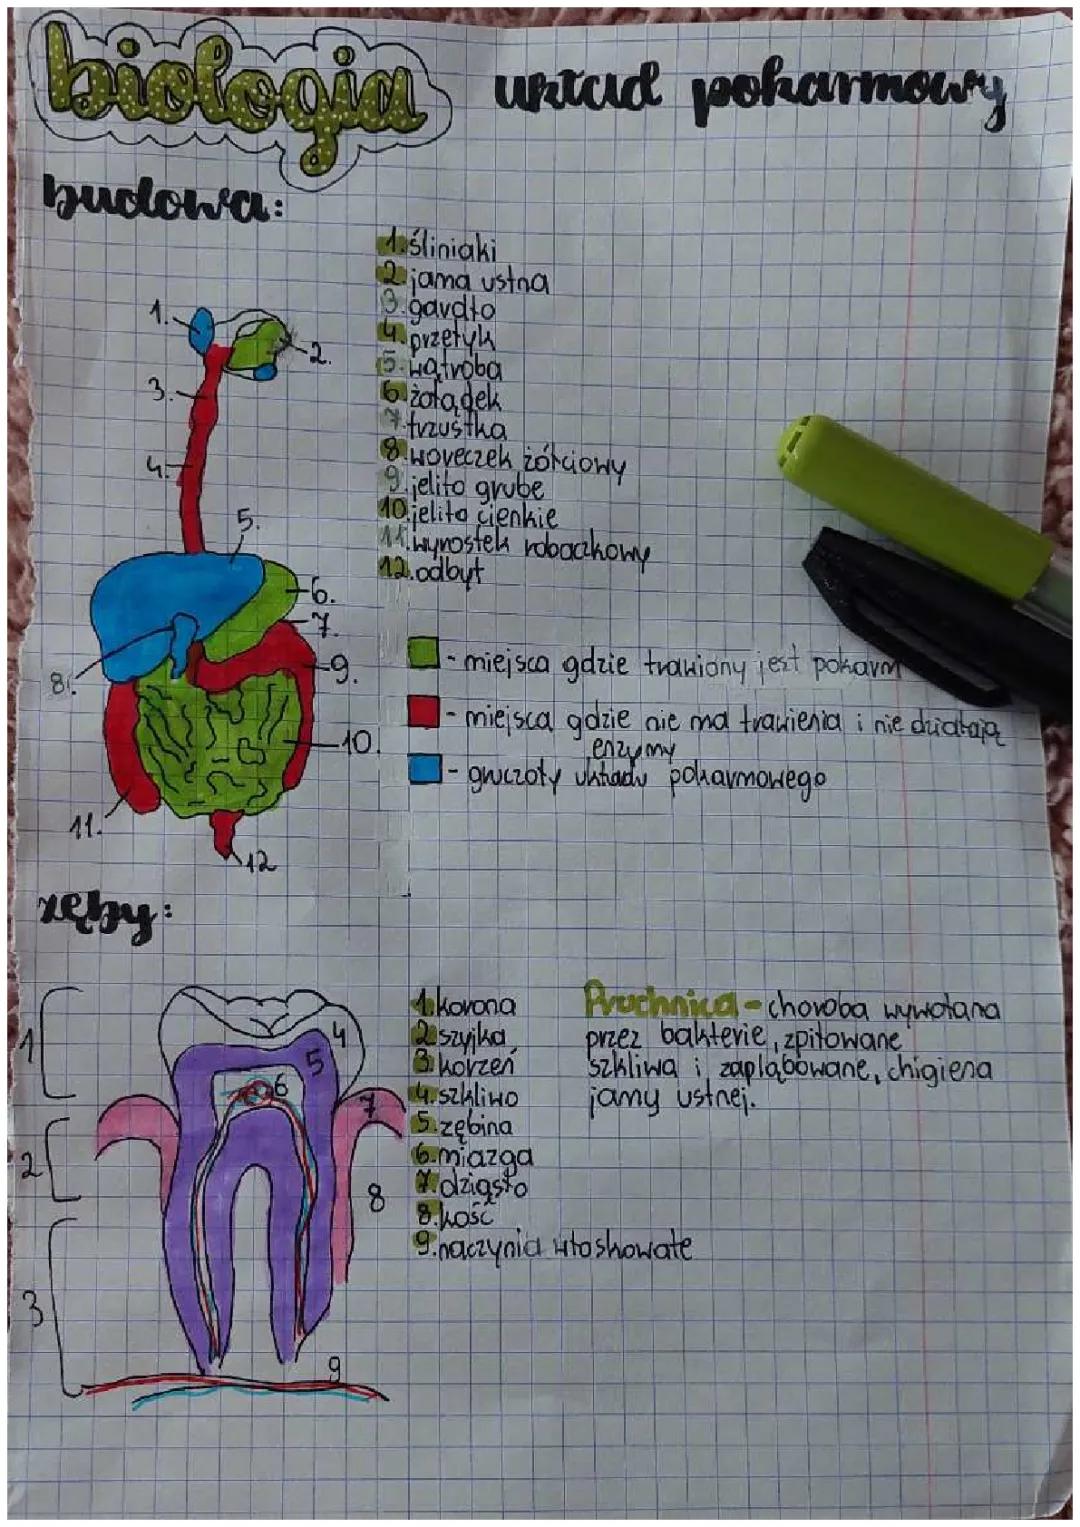 biologia układ pokarmowy
budowa:
1.śliniaki
2.jama ustna
3.gardło
4.przełyk
5.wątroba
6.żołądek
7.trzustka
8.woreczek żółciowy
9.jelito grube
10.jelito cienkie
11.wyrostek robaczkowy
12.odbyt
1.
2.
3.
4.
5.
6.
7.
8.
9.
10.
11.
12
- miejsca gdzie trawiony jest pokarm
- miejsca gdzie nie ma trawienia i nie działają
enzymy
- gruczoły układu pokarmowego
zęby:
1.korona
2.szyjka
3.korzeń
4.szkliwo
5.zębina
6.miazga
7.dziąsło
8.kość
9.naczynia włoskowate
Pruchnica - choroba wywołana
przez bakterie, zpiłowane
szkliwa i zapląbowane, chigiena
jamy ustnej.
1
2
3
4
5
6
7
8
9